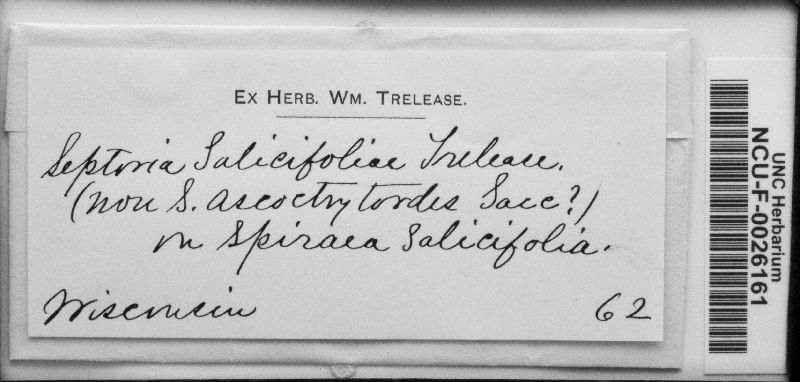 EX HERB. WM. TRELEASE.
Septoria Salicifoliae Trelease.
(non S. ascochytoides Sacc?)
on Spiraea Salicifolia.
Wisconsin 62
UNC Herbarium
NCU-F-0026161